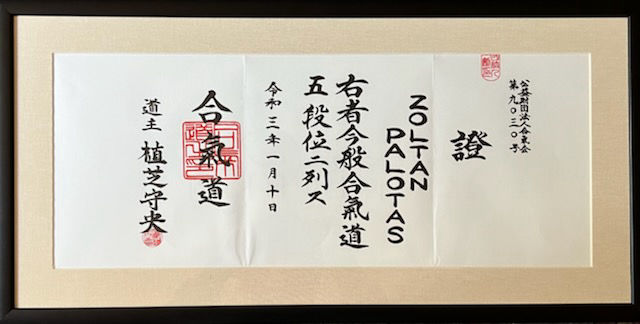 公益財団法人合気会
第九〇三〇号
證
ZOLTAN
PALOTAS
右者今般合氣道
五段位ニ列ス
令和三年一月十日
合氣道
道主 植芝守央